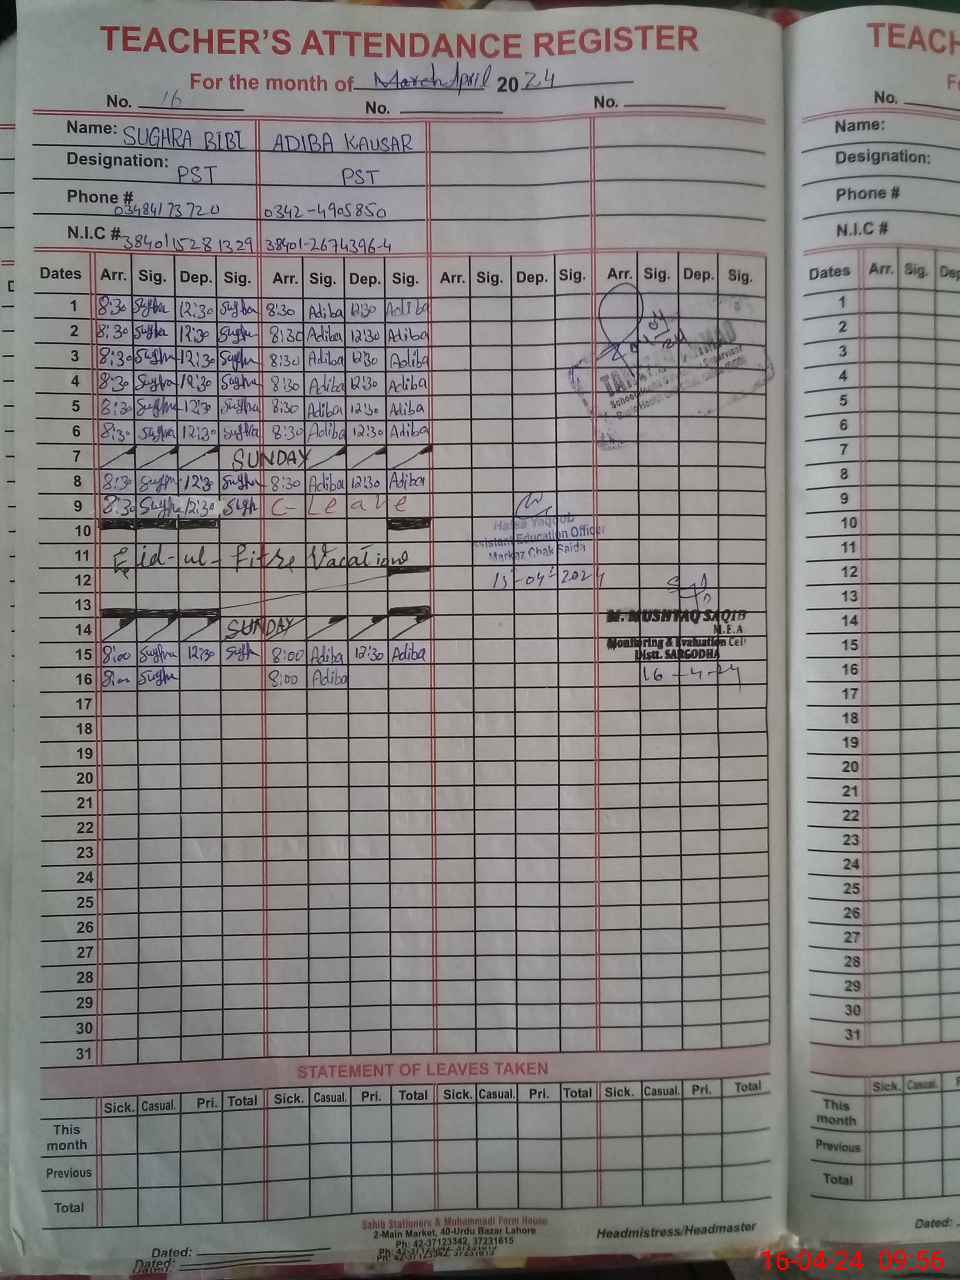 TEACHER'S ATTENDANCE REGISTER
For the month of March April 2024
No. 16 No. No.
Name: SUGHRA BIBI ADIBA KAUSAR
Designation: PST PST
Phone # 03484173720 0342-4905850
N.I.C # 3840115281329 38401-2674396-4
Dates Arr. Sig. Dep. Sig. Arr. Sig. Dep. Sig. Arr. Sig. Dep. Sig. Arr. Sig. Dep. Sig.
1 8:30 Sughra 12:30 Sughra 8:30 Adiba 12:30 Adiba
2 8:30 Sughra 12:30 Sughra 8:30 Adiba 12:30 Adiba
3 8:30 Sughra 12:30 Sughra 8:30 Adiba 12:30 Adiba
4 8:30 Sughra 12:30 Sughra 8:30 Adiba 12:30 Adiba
5 8:30 Sughra 12:30 Sughra 8:30 Adiba 12:30 Adiba
6 8:30 Sughra 12:30 Sughra 8:30 Adiba 12:30 Adiba
7 SUNDAY
8 8:30 Sughra 12:30 Sughra 8:30 Adiba 12:30 Adiba
9 8:30 Sughra 12:30 Sugh C- Leave
Assistant Education Officer
Markaz Chak Saida
15-04-2024
10
11 Eid-ul-Fitre Vacations
12
13
14 SUNDAY
M. MUSHTAQ SAQIB
M.E.A
Monitoring & Evaluation Cell
Distt. SARGODHA
16-4-24
15 8:00 Sughra 12:30 Sugh 8:00 Adiba 12:30 Adiba
16 8:00 Sughra 8:00 Adiba
17
18
19
20
21
22
23
24
25
26
27
28
29
30
31
STATEMENT OF LEAVES TAKEN
Sick. Casual. Pri. Total Sick. Casual. Pri. Total Sick. Casual. Pri. Total Sick. Casual. Pri. Total
This month
Previous
Total
Sahib Stationers & Muhammadi Form House
2-Main Market, 40-Urdu Bazar Lahore
Ph: 42-37123342, 37231615
Headmistress/Headmaster
Dated:
TEACH
No.
Name:
Designation:
Phone #
N.I.C #
Dates Arr. Sig. Dep
1
2
3
4
5
6
7
8
9
10
11
12
13
14
15
16
17
18
19
20
21
22
23
24
25
26
27
28
29
30
31
Sick. Casual.
This month
Previous
Total
Dated:
16-04-24 09:56